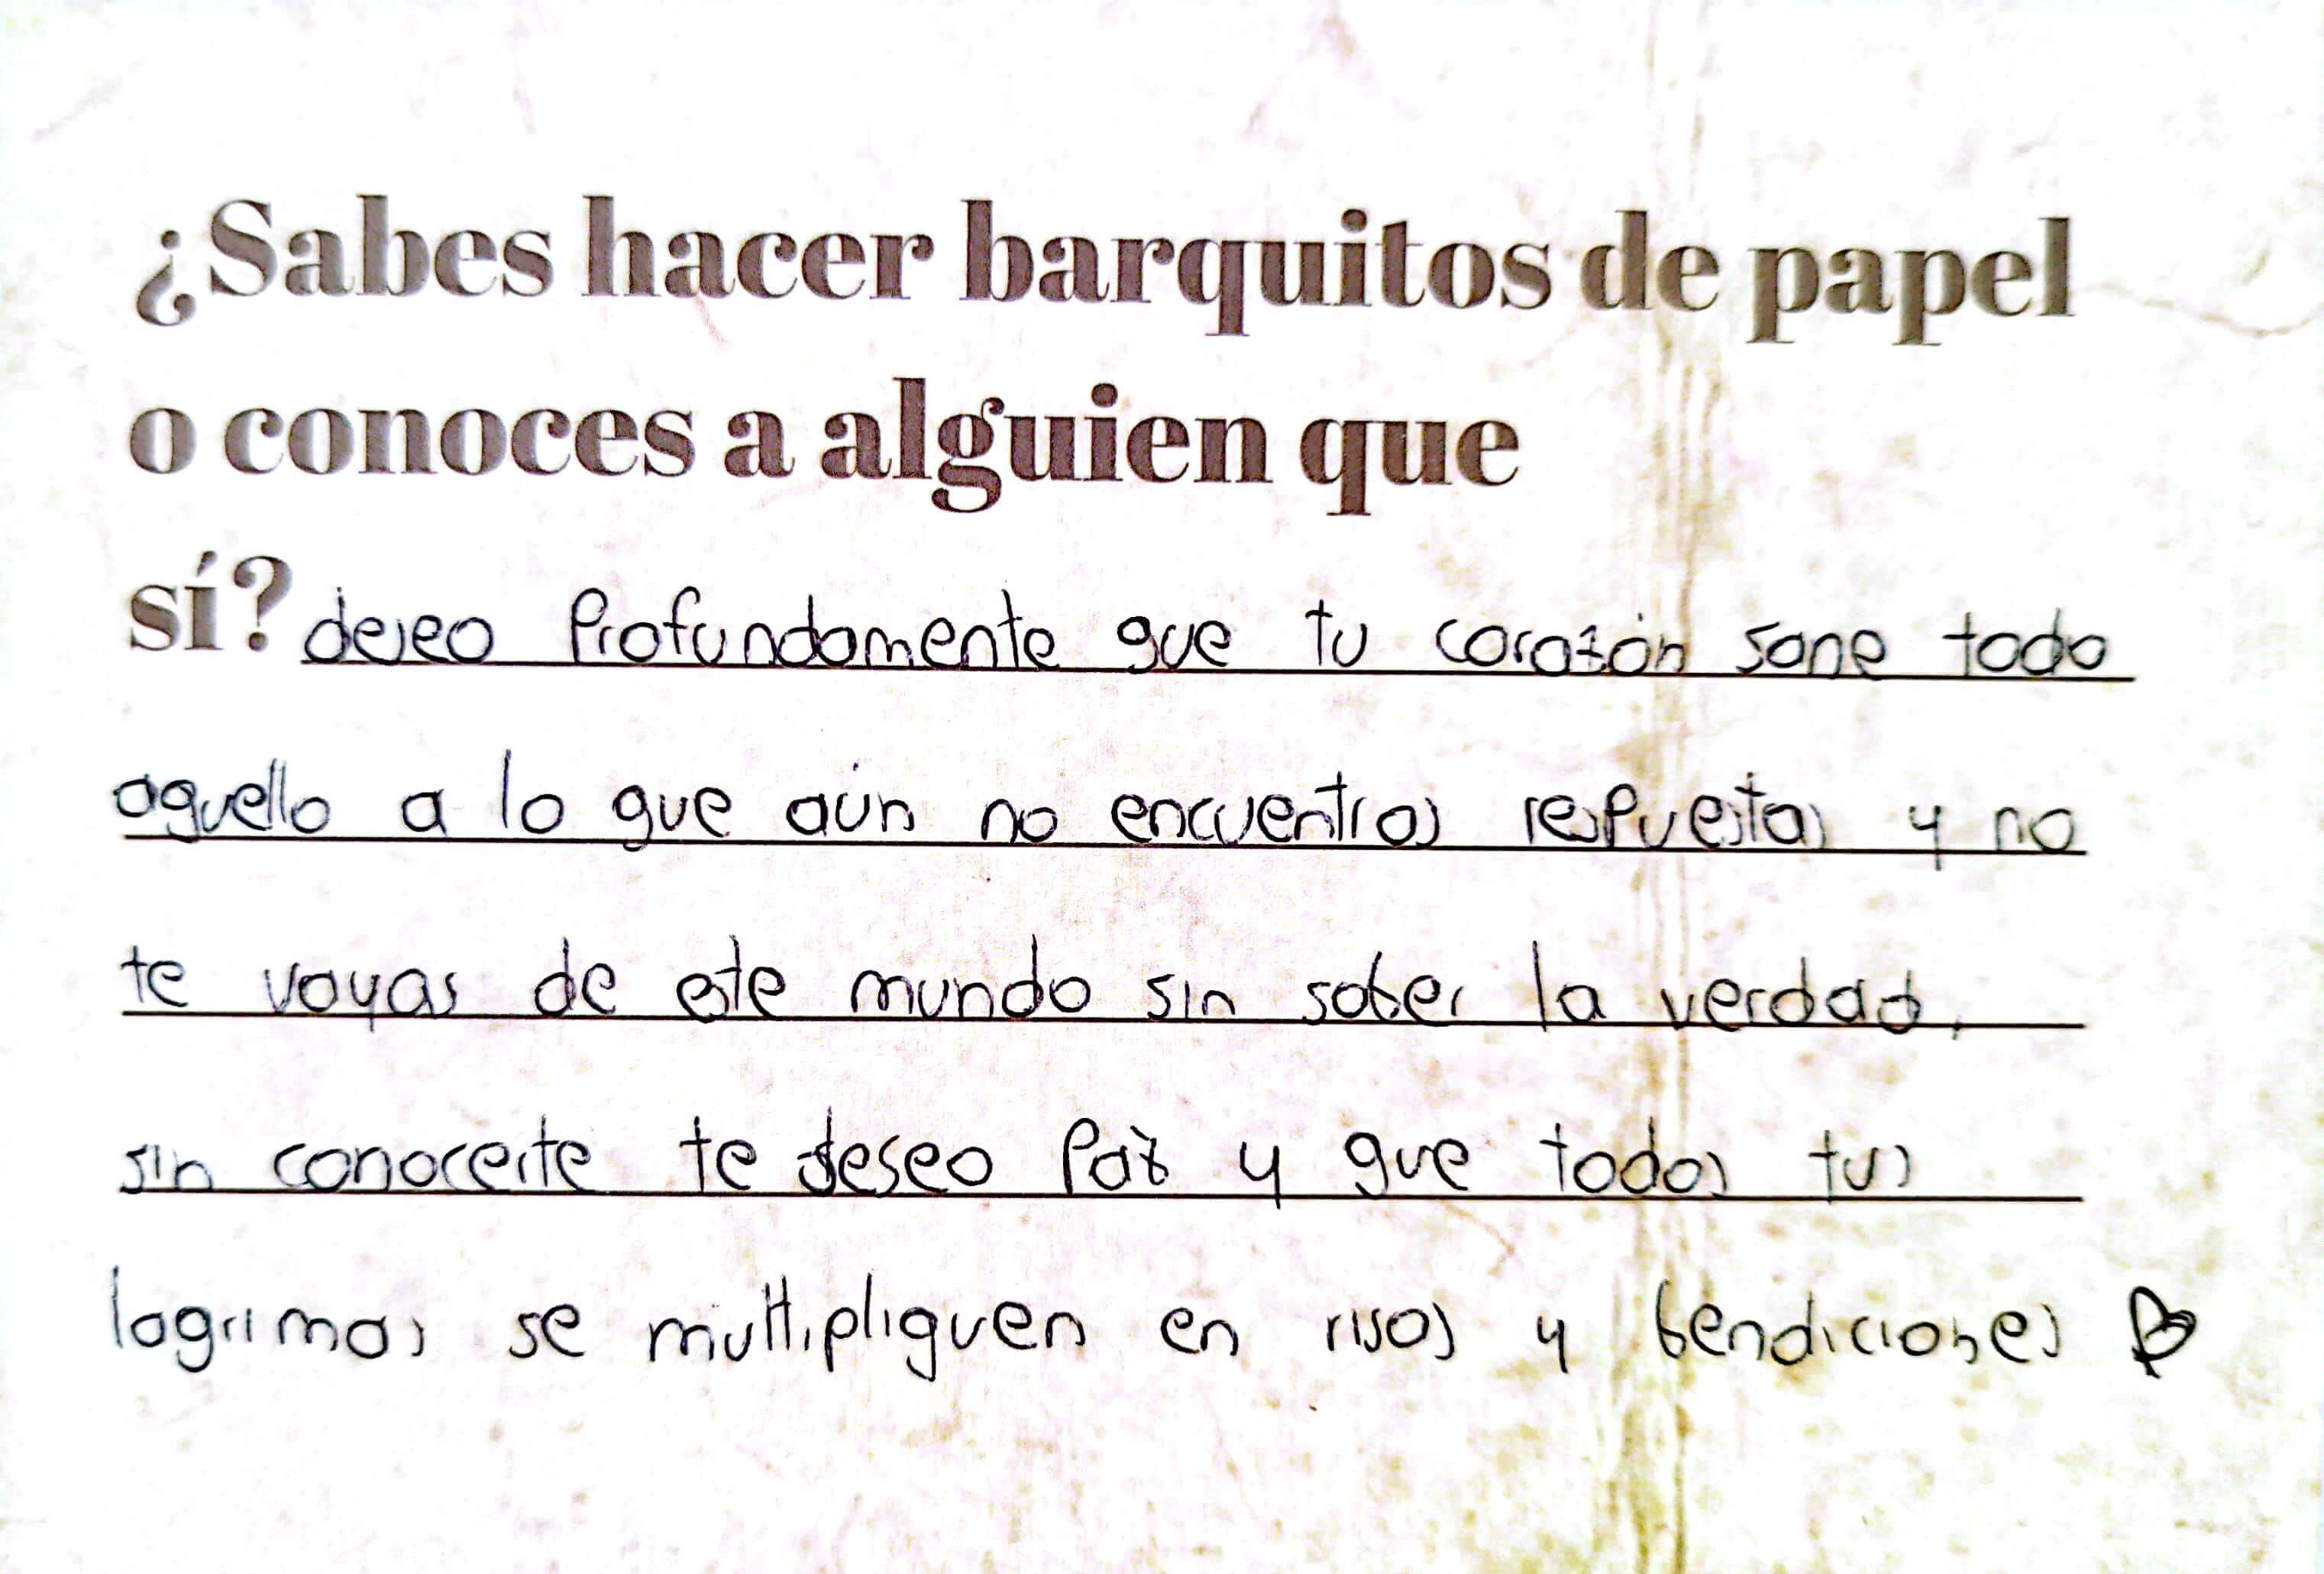 ¿Sabes hacer barquitos de papel
o conoces a alguien que
sí? deseo profundamente que tu corazón sane todo
aquello a lo que aún no encuentras respuestas y no
te vayas de este mundo sin saber la verdad,
sin conocerte te deseo paz y que todas tus
lagrimas se multipliquen en risas y bendiciones